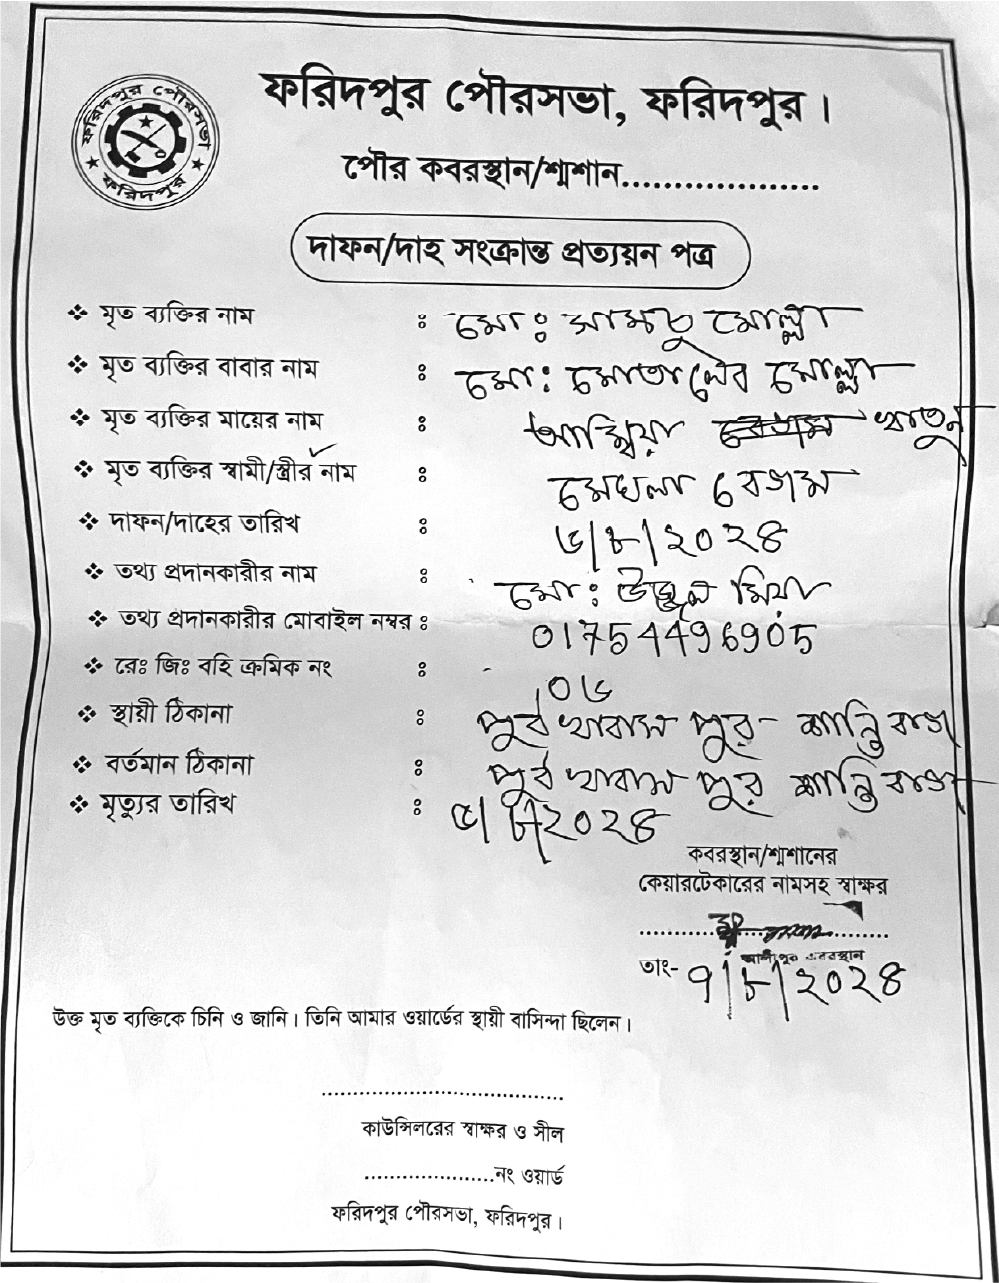 ফরিদপুর পৌরসভা, ফরিদপুর।
ফরিদপুর পৌরসভা
ফরিদপুর
পৌর কবরস্থান/শ্মশান...................
দাফন/দাহ সংক্রান্ত প্রত্যয়ন পত্র
❖ মৃত ব্যক্তির নাম ঃ মোঃ সামচু মোল্লা
❖ মৃত ব্যক্তির বাবার নাম ঃ মো: মোতালেব মোল্লা
❖ মৃত ব্যক্তির মায়ের নাম ঃ আম্বিয়া বেগম খাতুন
❖ মৃত ব্যক্তির স্বামী/স্ত্রীর নাম ঃ মেঘলা বেগম
❖ দাফন/দাহের তারিখ ঃ ৬/৮/২০২৪
❖ তথ্য প্রদানকারীর নাম ঃ মো: মিয়া
❖ তথ্য প্রদানকারীর মোবাইল নম্বর ঃ 01754496905
❖ রেঃ জিঃ বহি ক্রমিক নং ঃ ১০৬
❖ স্থায়ী ঠিকানা ঃ পূর্ব খাবাসপুর- শান্তিবাগ
❖ বর্তমান ঠিকানা ঃ পূর্ব খাবাসপুর শান্তিবাগ
❖ মৃত্যুর তারিখ ঃ ৫/৮/২০২৪
কবরস্থান/শ্মশানের
কেয়ারটেকারের নামসহ স্বাক্ষর
আলীপুর কবরস্থান
তাং- ৭/৮/২০২৪
উক্ত মৃত ব্যক্তিকে চিনি ও জানি। তিনি আমার ওয়ার্ডের স্থায়ী বাসিন্দা ছিলেন।
....................................
কাউন্সিলরের স্বাক্ষর ও সীল
.....................নং ওয়ার্ড
ফরিদপুর পৌরসভা, ফরিদপুর।